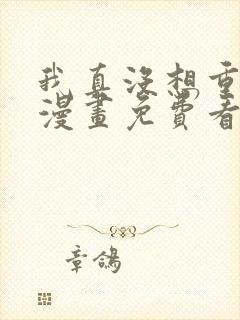 我真没想重
漫畫免費看
章鴿